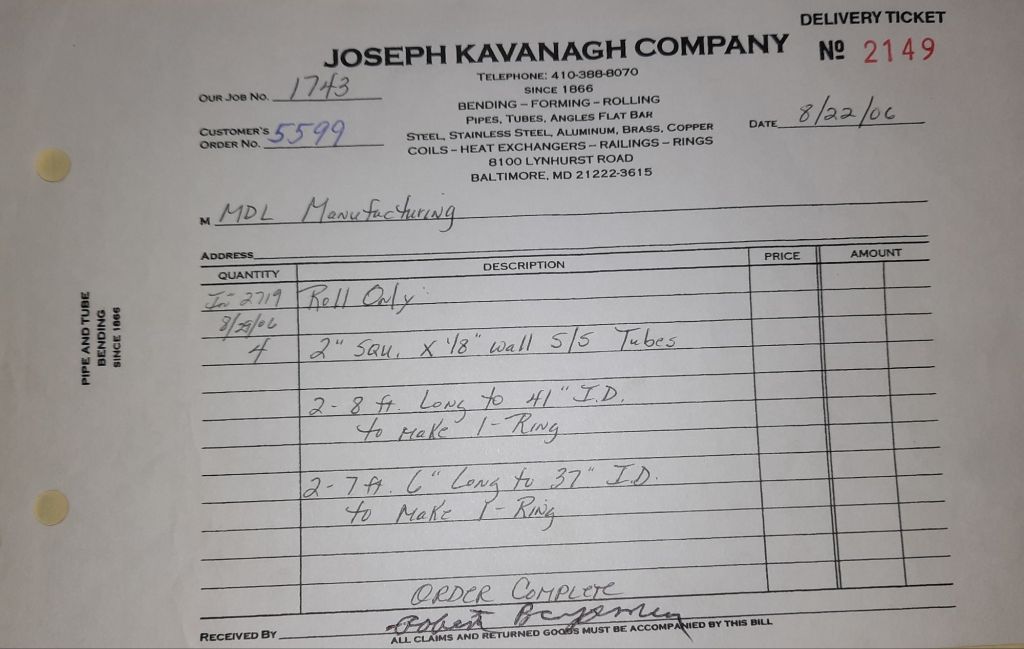 DELIVERY TICKET
JOSEPH KAVANAGH COMPANY
Nº 2149
TELEPHONE: 410-388-8070
SINCE 1866
BENDING – FORMING – ROLLING
PIPES, TUBES, ANGLES FLAT BAR
STEEL, STAINLESS STEEL, ALUMINUM, BRASS, COPPER
COILS – HEAT EXCHANGERS – RAILINGS – RINGS
8100 LYNHURST ROAD
BALTIMORE, MD 21222-3615
OUR JOB NO. 1743
CUSTOMER'S ORDER NO. 5599
DATE 8/22/06
M MDL Manufacturing
ADDRESS
QUANTITY DESCRIPTION PRICE AMOUNT
2719 Roll Only
8/29/06
4 2" Squ. x 1/8" wall S/S Tubes
2 - 8 ft. Long to 41" I.D.
to Make 1 - Ring
2 - 7 ft. 6" Long to 37" I.D.
to Make 1 - Ring
ORDER COMPLETE
RECEIVED BY Robert
ALL CLAIMS AND RETURNED GOODS MUST BE ACCOMPANIED BY THIS BILL
PIPE AND TUBE
BENDING
SINCE 1866